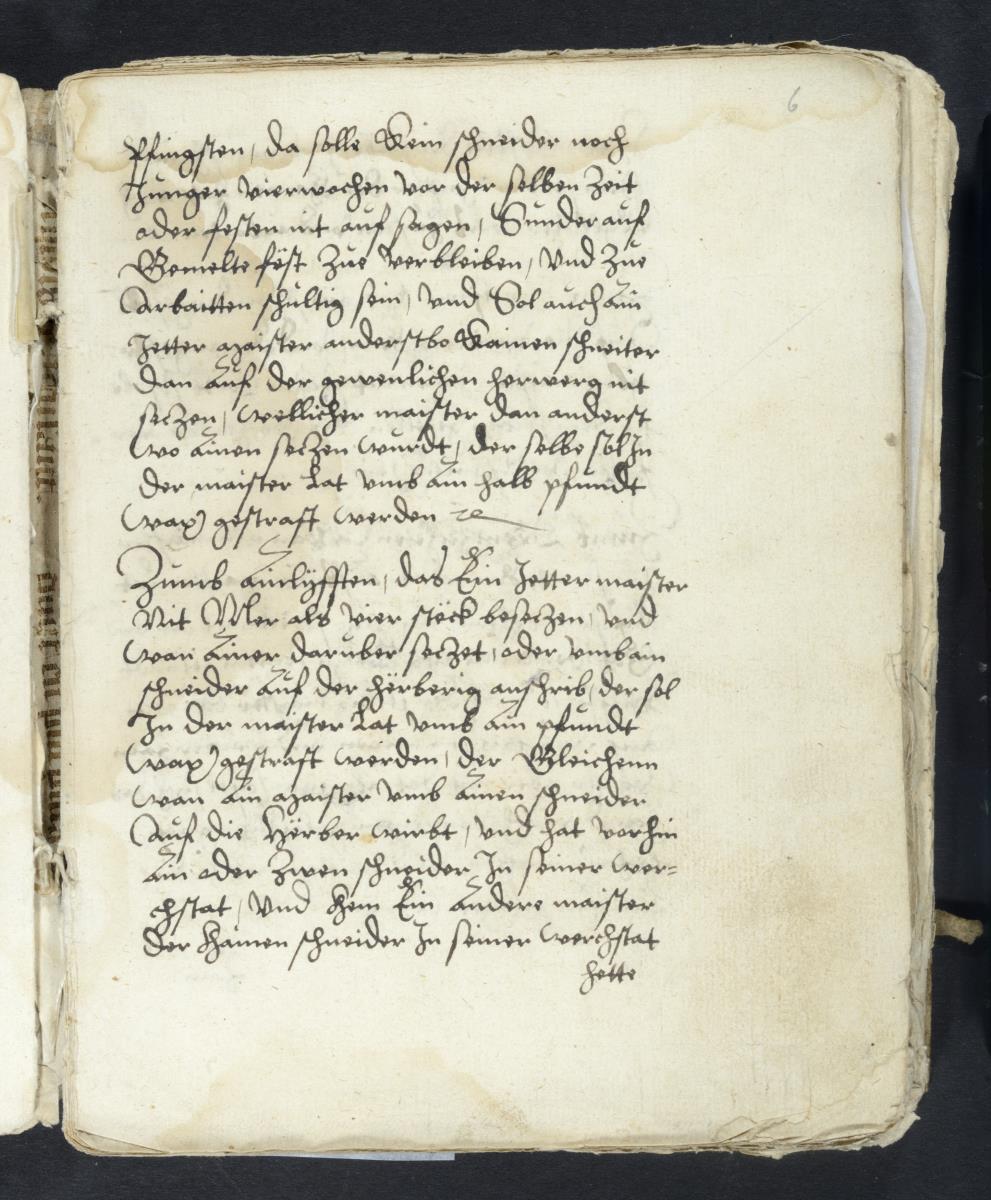 6
Pfingsten, da solle Kein schneider noch
Junger vierwochen vor der selben Zeit
oder festen nit auf sagen, Sunder auf
Gemelte fëst Zue verbleiben, vnd Zue
arbaitten schultig sein, vnd Sol auch ain
Jetter maister anderstwo Kainen schneiter
dan auf der gewenlichen herwerg nit
seczen, wellicher maister dan anderst
wo ainen seczen wurdt, der selbe sol Jn
der maister Lat vmb ain halb pfundt
wax gestraft werden
Zumb ainlÿfften, das Ein Jetter maister
Nit Mer als vier stëck beseczen, vnd
wan ainer daruber seczet, oder vmb ain
schneider auf der hërberig anschrib, der sol
Jn der maister Lat vmb ain pfundt
wax gestraft werden, der Gleichenn
wan ain maister vmb ainen schneider
auf die Hërber wirbt, vnd hat vorhin
ain oder Zwen schneider Jn seiner wer=
chstat, vnd Kem Ein andere maister
der Kainen schneider Jn seiner werchstat
hette